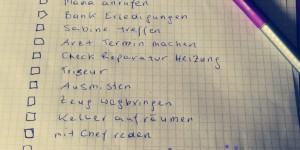 Mama anrufen
Bank Erledigungen
Sabine treffen
Arzt Termin machen
Check Reparatur Heizung
Friseur
Ausmisten
Zeug wegbringen
Keller aufräumen
mit Chef reden